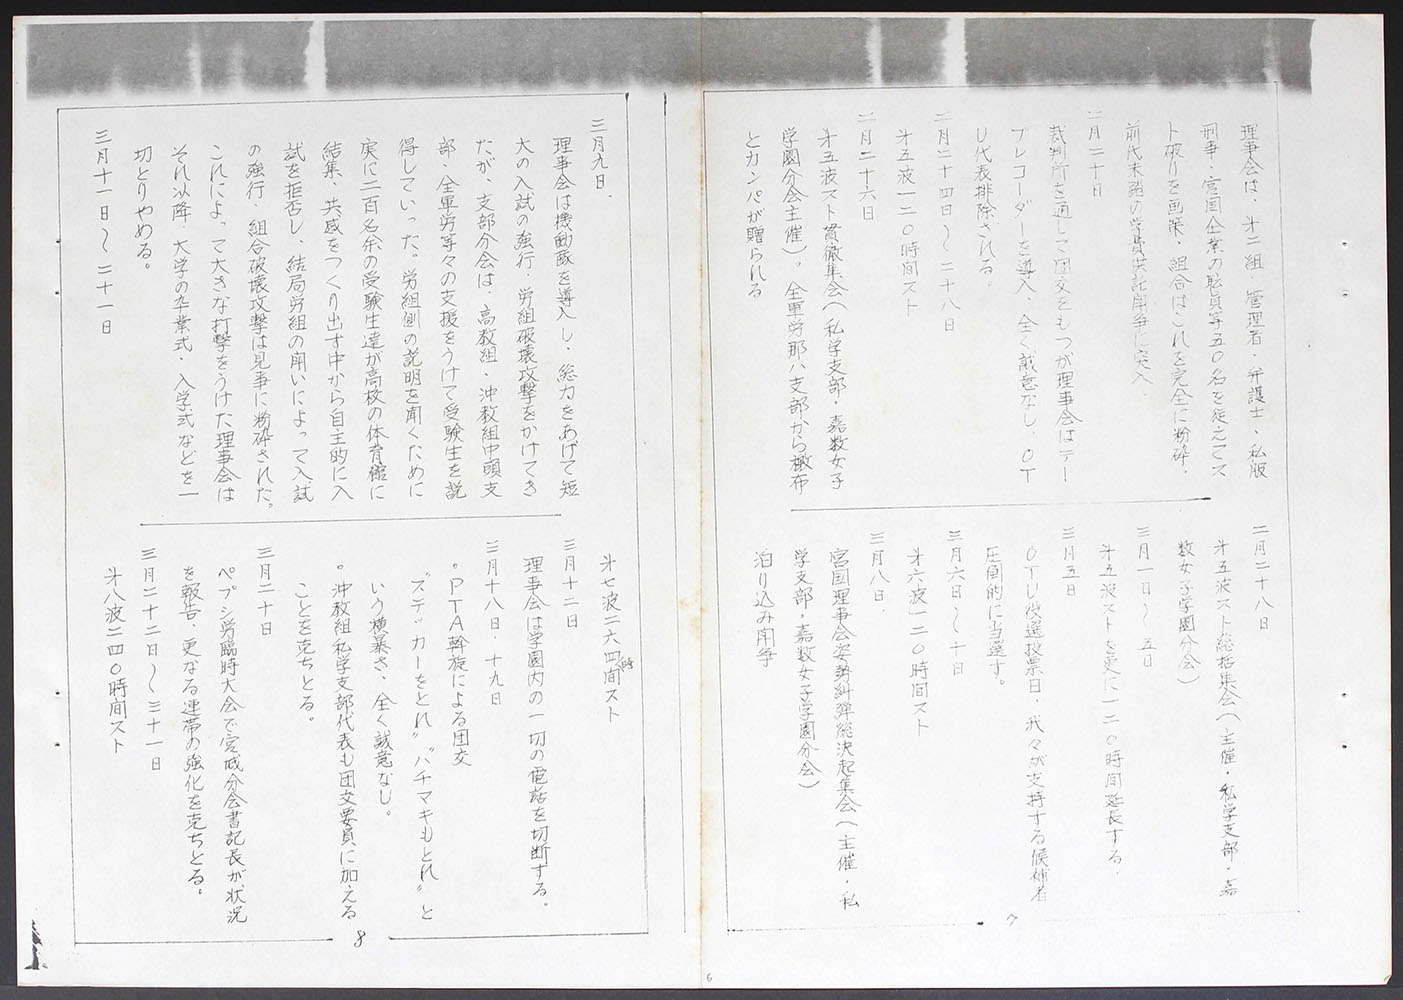 理事会は、㐧二組 管理者・弁護士、私服
刑事・宮国企業の職員等五〇名を従えてス
ト破りを画策、組合はこれを完全に粉砕、
前代未踏の学費供託闘争に突入。
二月二十日
裁判所を通して団交をもつが理事会はテー
プレコーダーを導入、全く誠意なし、OT
U代表排除される。
二月二十四日〜二十八日
㐧五波一二〇時間スト
二月二十六日
㐧五波スト貫徹集会(私学支部・嘉数女子
学園分会主催)。全軍労那ハ支部から檄布
とカンパが贈られる
二月二十八日
㐧五波スト総括集会(主催・私学支部・嘉
数女子学園分会)
三月一日〜五日
㐧五波ストを更に一二〇時間延長する。
三月五日
OTU役選投票日、我々が支持する候補者
圧倒的に当選す。
三月六日〜十日
㐧六波一二〇時間スト
三月八日
宮国理事会姿勢糾弾総決起集会(主催・私
学支部・嘉数女子学園分会)
泊り込み闘争
7
三月九日.
理事会は機動隊を導入し、総力をあげて短
大の入試の強行、労組破壊攻撃をかけてき
たが、支部分会は、高教組・沖教組中頭支
部、全軍労等々の支援をうけて受験生を説
得していった。労組側の説明を聞くために
実に二百名余の受験生達が高校の体育館に
結集、共感をつくり出す中から自主的に入
試を拒否し、結局労組の闘いによって入試
の強行、組合破壊攻撃は見事に粉砕された。
これによって大きな打撃をうけた理事会は
それ以降、大学の卒業式・入学式などを一
切とりやめる。
三月十一日〜二十一日
㐧七波二六四時間スト
三月十二日
理事会は学園内の一切の電話を切断する。
三月十八日、十九日
。PTA幹旋による団交
〝ズデ〟カーをとれ〟〝ハチマキもとれ〟と
いう横暴さ、全く誠意なし。
。沖教組私学支部代表も団交要員に加える
ことを克ちとる。
三月二十日
ペプシ労臨時大会で宮城分会書記長が状況
を報告、更なる連帯の強化を克ちとる。
三月二十二日〜三十一日
㐧八波二四〇時間スト
8
6